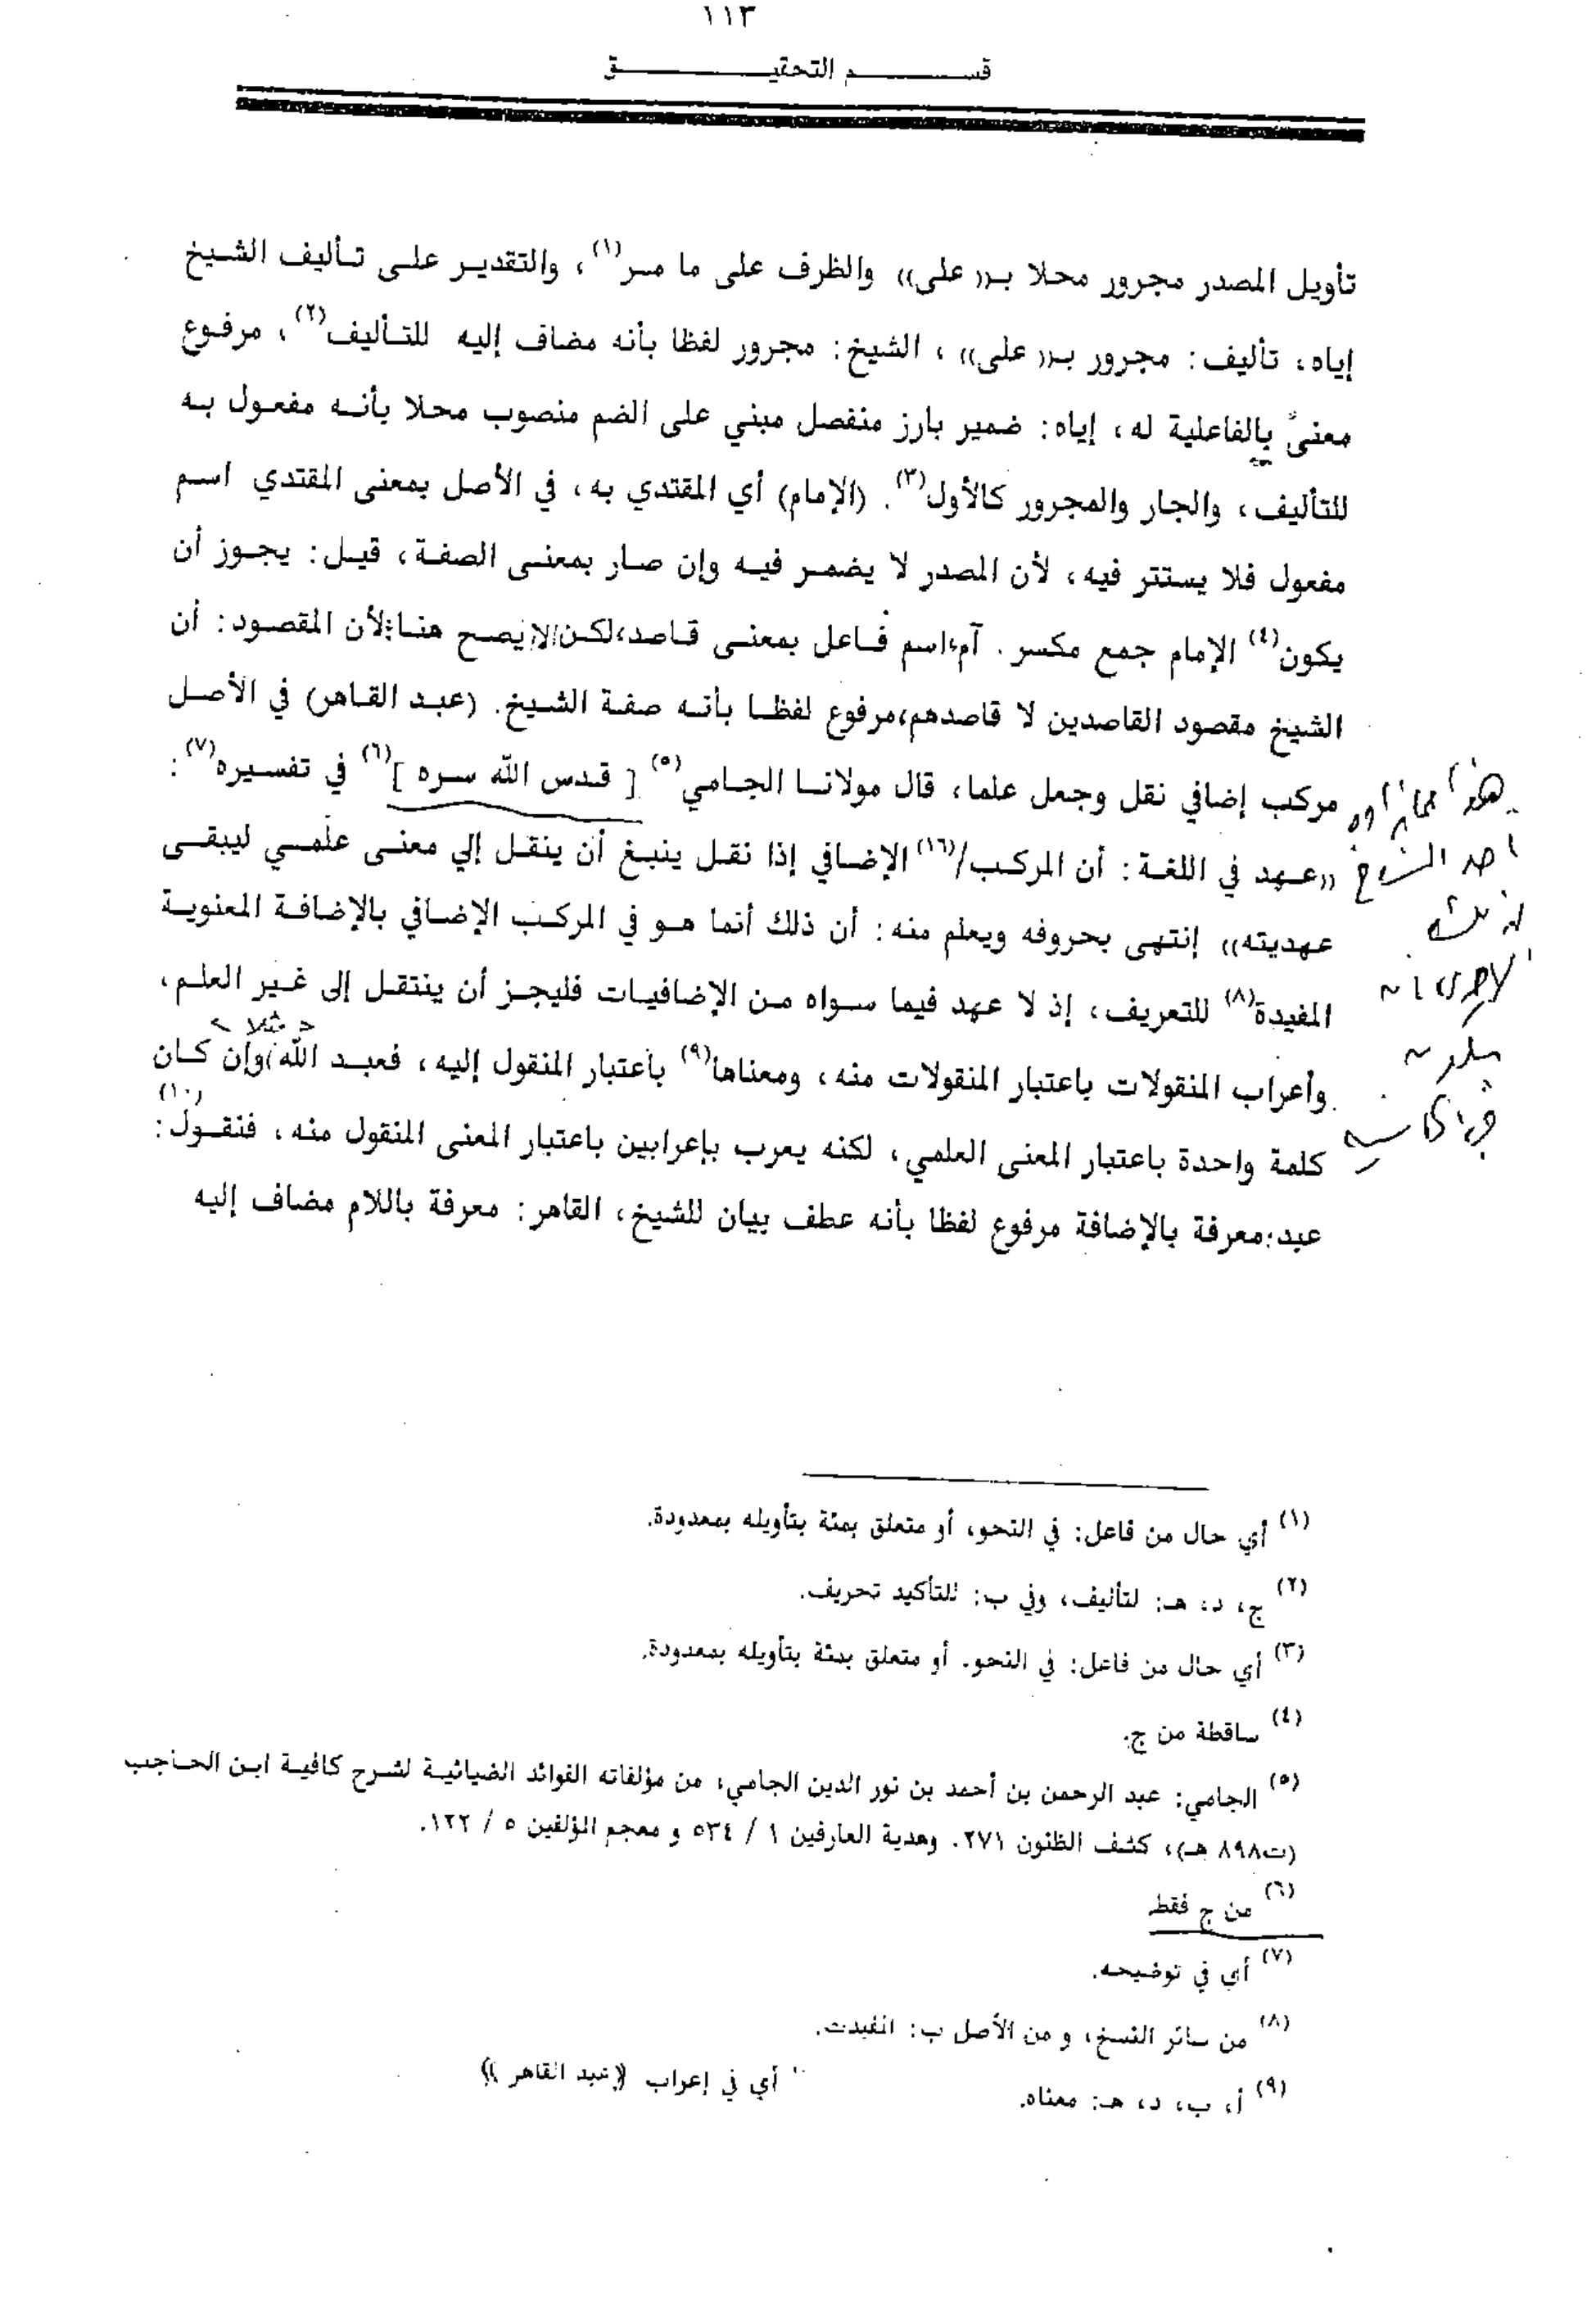 ١١٣
قسم التحقيق
تأويل المصدر مجرور محلا بـ«على» والظرف على ما مر(١)، والتقدير على تأليف الشيخ
إياه، تأليف: مجرور بـ«على»، الشيخ: مجرور لفظا بأنه مضاف إليه للتأليف(٢)، مرفوع
معنىً بالفاعلية له، إياه: ضمير بارز منفصل مبني على الضم منصوب محلا بأنه مفعول به
للتأليف، والجار والمجرور كالأول(٣). (الإمام) أي المقتدي به، في الأصل بمعنى المقتدي اسم
مفعول فلا يستتر فيه، لأن المصدر لا يضمر فيه وإن صار بمعنى الصفة، قيل: يجوز أن
يكون(٤) الإمام جمع مكسر. آم، اسم فاعل بمعنى قاصد، لكن لا يصح هنا؛ لأن المقصود: أن
الشيخ مقصود القاصدين لا قاصدهم، مرفوع لفظا بأنه صفة الشيخ. (عبد القاهر) في الأصل
مركب إضافي نقل وجعل علما، قال مولانا الجامي(٥) [قدس الله سره](٦) في تفسيره(٧):
«عهد في اللغة: أن المركب/(١٦) الإضافي إذا نقل ينبغ أن ينقل إلي معنى علمي ليبقى
عهديته» إنتهى بحروفه ويعلم منه: أن ذلك أنما هو في المركب الإضافي بالإضافة المعنوية
المفيدة(٨) للتعريف، إذ لا عهد فيما سواه من الإضافيات فليجز أن ينتقل إلى غير العلم،
وأعراب المنقولات باعتبار المنقولات منه، ومعناها(٩) بأعتبار المنقول إليه، فعبد الله، وإن كان
< مثلا >
كلمة واحدة باعتبار المعنى العلمي، لكنه يعرب بإعرابين باعتبار المعنى المنقول منه، فنقول(١٠):
عبد: معرفة بالإضافة مرفوع لفظا بأنه عطف بيان للشيخ، القاهر: معرفة باللام مضاف إليه
هذا
(١) أي حال من فاعل: في النحو، أو متعلق بمئة بتأويله بمعدودة.
(٢) ج، د، هـ: لتأليف، وفي ب: للتأكيد تحريف.
(٣) أي حال من فاعل: في النحو. أو متعلق بمئة بتأويله بمعدودة.
(٤) ساقطة من ج.
(٥) الجامي: عبد الرحمن بن أحمد بن نور الدين الجامي، من مؤلفاته الفوائد الضيائية لشرح كافية ابن الحاجب
(ت٨٩٨ هـ)، كشف الظنون ٢٧١. وهدية العارفين ١ / ٥٣٤ و معجم المؤلفين ٥ / ١٢٢.
(٦) من ج فقط
(٧) أي في توضيحه.
(٨) من سائر النسخ، و من الأصل ب: المفيدت.
(٩) أ، ب، د، هـ: معناه.
أي في إعراب «عبد القاهر»